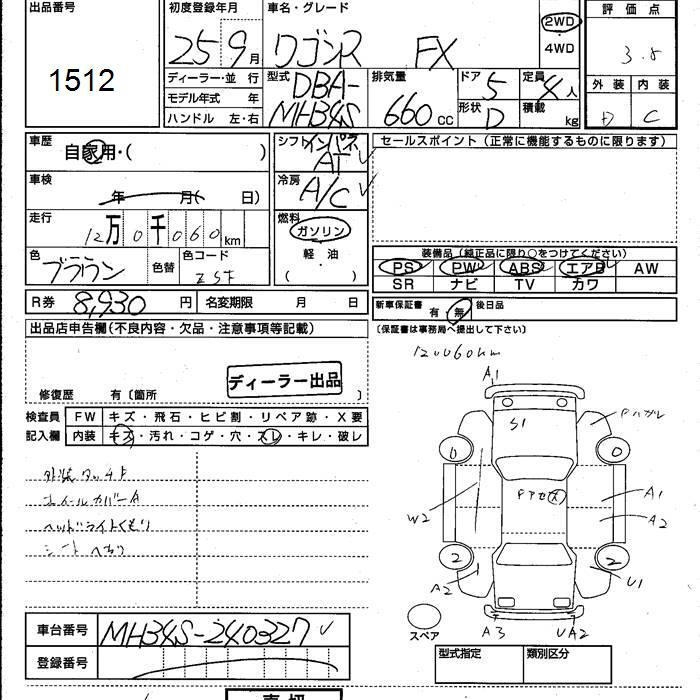 出品番号 初度登録年月 車名・グレード 評価点
1512 25 9月 ワゴンR FX 2WD ・ 4WD 3.5
ディーラー・並 行 型式 DBA- MH34S 排気量 660 cc ドア 5 定員 4人 外装 内装
モデル年式 年 形状 D 積載 kg D C
ハンドル 左・右
車歴 自家用・( ) シフト インパネ AT セールスポイント (正常に機能するものに限ります)
車検 年 月( 日) 冷房 A/C
走行 12万0千060km 燃料 ガソリン
軽・油
( )
色 ブラウン 色替 色コード ZSF
装備品 (純正品に限り○をつけてください)
PS PW ABS エアB AW
SR ナビ TV カワ
R券 8,930円 名変期限 月 日 新車保証書 有・無 後日品
(保証書は事務局へ提出して下さい)
出品店申告欄(不良内容・欠品・注意事項等記載)
ディーラー出品
修復歴 有〔箇所 〕
検査員 FW キズ・飛石・ヒビ割・リペア跡・X要
記入欄 内装 キズ・汚れ・コゲ・穴・スレ・キレ・破レ
外装タッチP
ホイールカバーA
ヘッドライトくもり
シート
120060km
A1
Pハガレ
S1
0 0
W2 A1
A2
2 2
A2 1 U1
A3 UA2
スペア
車台番号 MH34S-240327
登録番号
型式指定 類別区分